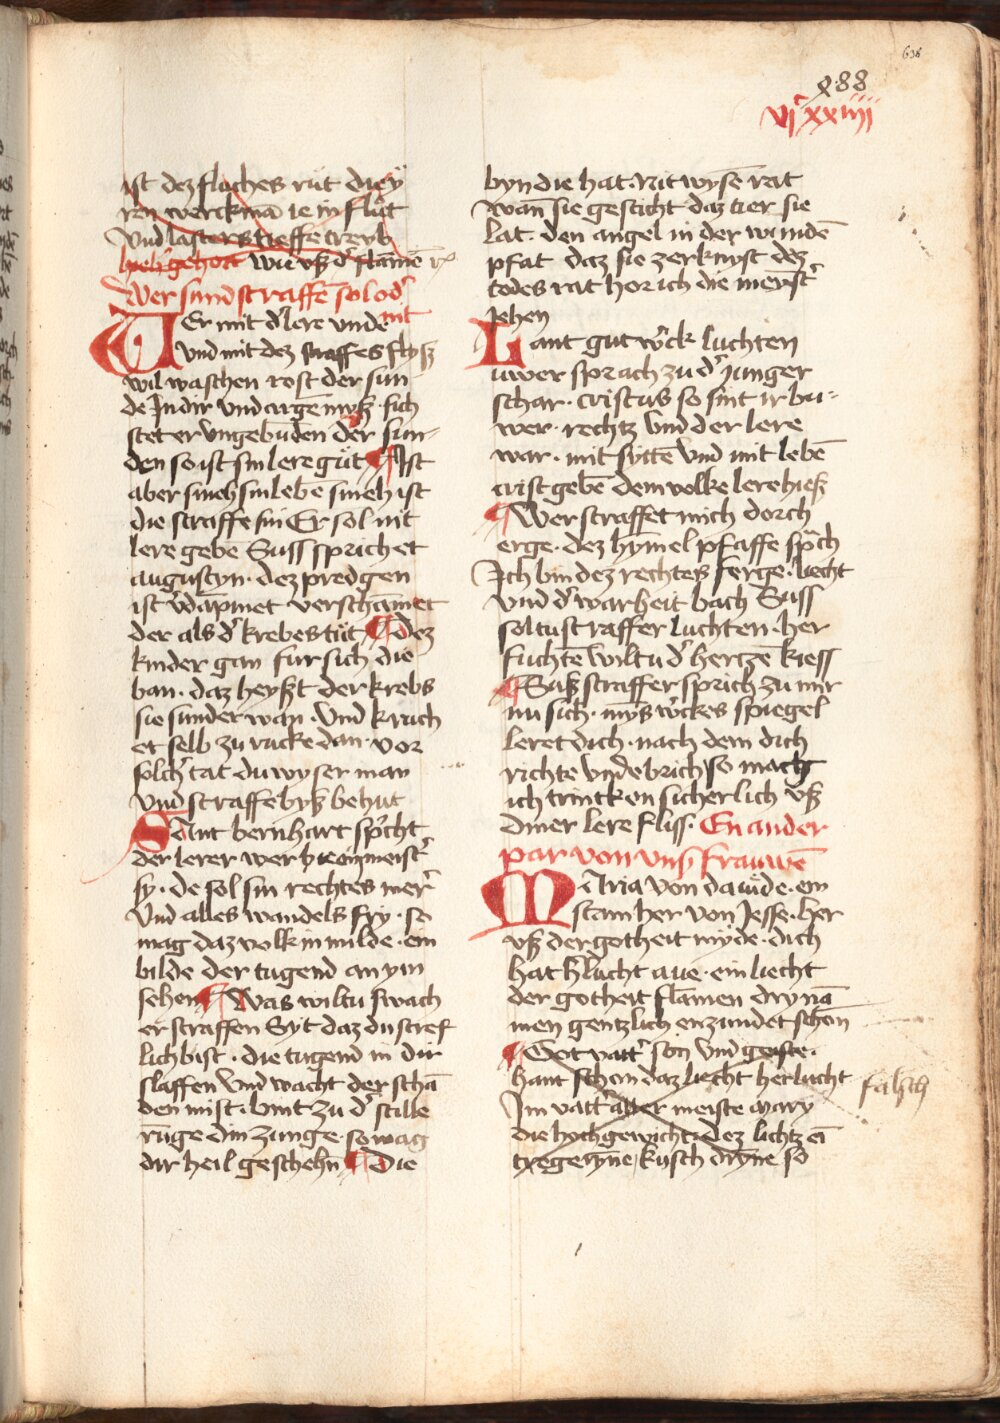 638
288
vjͨ xxiiij
ist dez fluches rüt die ÿ
ren werckmā ie in flůt
vnd lasters tieffe treyb
hieh' gehort wie vß d' flāmē
Wer sund straffē sol od'
nit
WEr mit d' lere vnde
vnd mit dez straffes flyß
wil waschen rost der sun
de Jn dir vnd argē myß · sich
stet er vngebūden der sun-
den so ist sin lere gůt ¶ Ist
aber smeh sin lebē smeh ist
die straffe sin Er sol nit
lere gebē Suss sprichet
augustyn · dez predgen
ist v'dāpmet verschāmet
der als d' krebes tůt ¶ dez
kinder gan fur sich die
ban · daz heyßt der krebs
sie sunder wan · Vnd kruch
et selb zu rucke dan · vor
solch' tat du wyser man
vnd straffe byß behut
SAnt bernhart sp'cht
der lerer wer meist'
sy · de sol sin rechtes mer'
vnd alles wandels fry · so
mag daz volk in milde · ein
bilde der tugend an ym
sehen ¶ Was wiltu swach
er straffen Syt daz du stref
lich bist · die tugend in dir
slaffen vnd wacht der schā
den mist · bint zu d' stille
rūge din zunge · so mag
dir heil geschehn ¶ Die
byn die hat · Nit wysē rat
wañ sie gesticht daz tier sie
lat · den angel in der wundē
pfat daz sie zerknyst dez
todes rat hor ich die menst'
Jehen
Lant gut w'ck luchten
uwer sprach zu d' Junger
schar · cristus so sint ir bu-
wer · rechtz vnd der lere
war · mit syttē vnd mit lebē
crist gebē dem volke lere hieß
¶ Wer straffet mich dorch
erge · dez hȳmel pfaffe sprach
Ich bin dez rechtes ferge · liecht
vnd d' warheit bach Suss
soltu straffer luchten · her
fuchtē wiltu d' hertzē kiess
¶ Suß straffer sprich zu mir
nu sich · myns w'ckes spiegel
leret dich · nach dem dich
richte vnde brich so mach
ich trincken sicherlich vß
diner lere fliss · En ander
par von vns' frauwē
MAria von dauide · ein
stam her von Jesse · her
vß der gotheit myde · dich
hat h'lucht aue · ein liecht
der gotheit flāmen dry nā
men gentzlich enzundet schon
¶ Got vatt' son vnd geiste ·
hant schon daz liecht herlucht
Im vatt' aller meiste mary
die hochgewicht · dez lichtz ei
kusch so
falsch